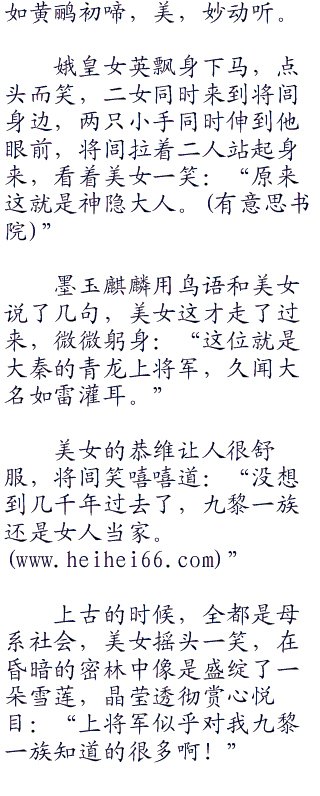 如黄鹂初啼，美，妙动听。
娥皇女英飘身下马，点
头而笑，二女同时来到将闾
身边，两只小手同时伸到他
眼前，将闾拉着二人站起身
来，看着美女一笑：“原来
这就是神隐大人。(有意思书
院)”
墨玉麒麟用鸟语和美女
说了几句，美女这才走了过
来，微微躬身：“这位就是
大秦的青龙上将军，久闻大
名如雷灌耳。”
美女的恭维让人很舒
服，将闾笑嘻嘻道：“没想
到几千年过去了，九黎一族
还是女人当家。
(www.heihei66.com)”
上古的时候，全都是母
系社会，美女摇头一笑，在
昏暗的密林中像是盛绽了一
朵雪莲，晶莹透彻赏心悦
目：“上将军似乎对我九黎
一族知道的很多啊！”